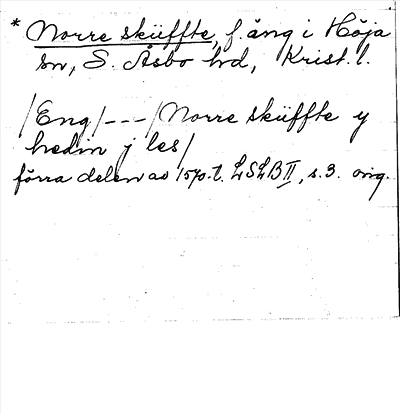 * Norre sküffte, f. äng i Höja
sn, S. Åsbo hd, Krist. l.
/Eng/---/Norre sküffte y
hedin j les/
förra delen av 1570-t. LSLB II, s. 3. orig.